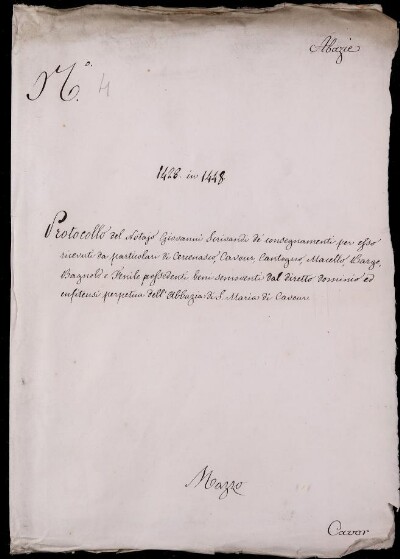 Abazie
N.º 4
1426. in 1448.
Protocollo del Notajo Giovanni de' consegnamenti per esso
ricevuti da particolari di Cercenasco, Cavour, Cantogno, Macello, Barge,
Bagnolo e Fenile possidenti beni semoventi dal diretto dominio ed
enfiteusi perpetua dell'Abbazia di S. Maria di Cavour
Mazzo
Cavor